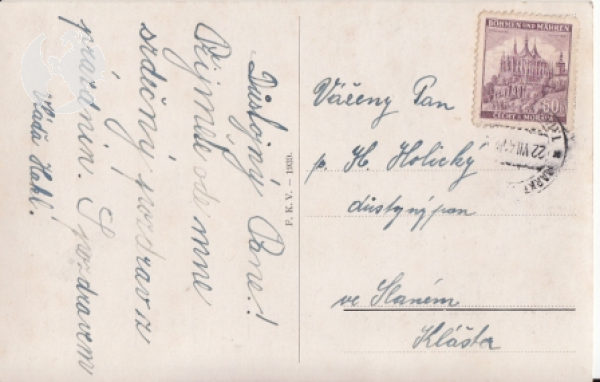 Důstojný Pane!
Přijměte ode mne
srdečný pozdrav z
prázdnin. S pozdravem
Vláďa Hakl.
F. K. V. — 1939.
BÖHMEN UND MÄHREN
60
ČECHY A MORAVA
22 VII
Vážený Pan
p. H. Holický
důstojný pan
ve Slaném
Klášter